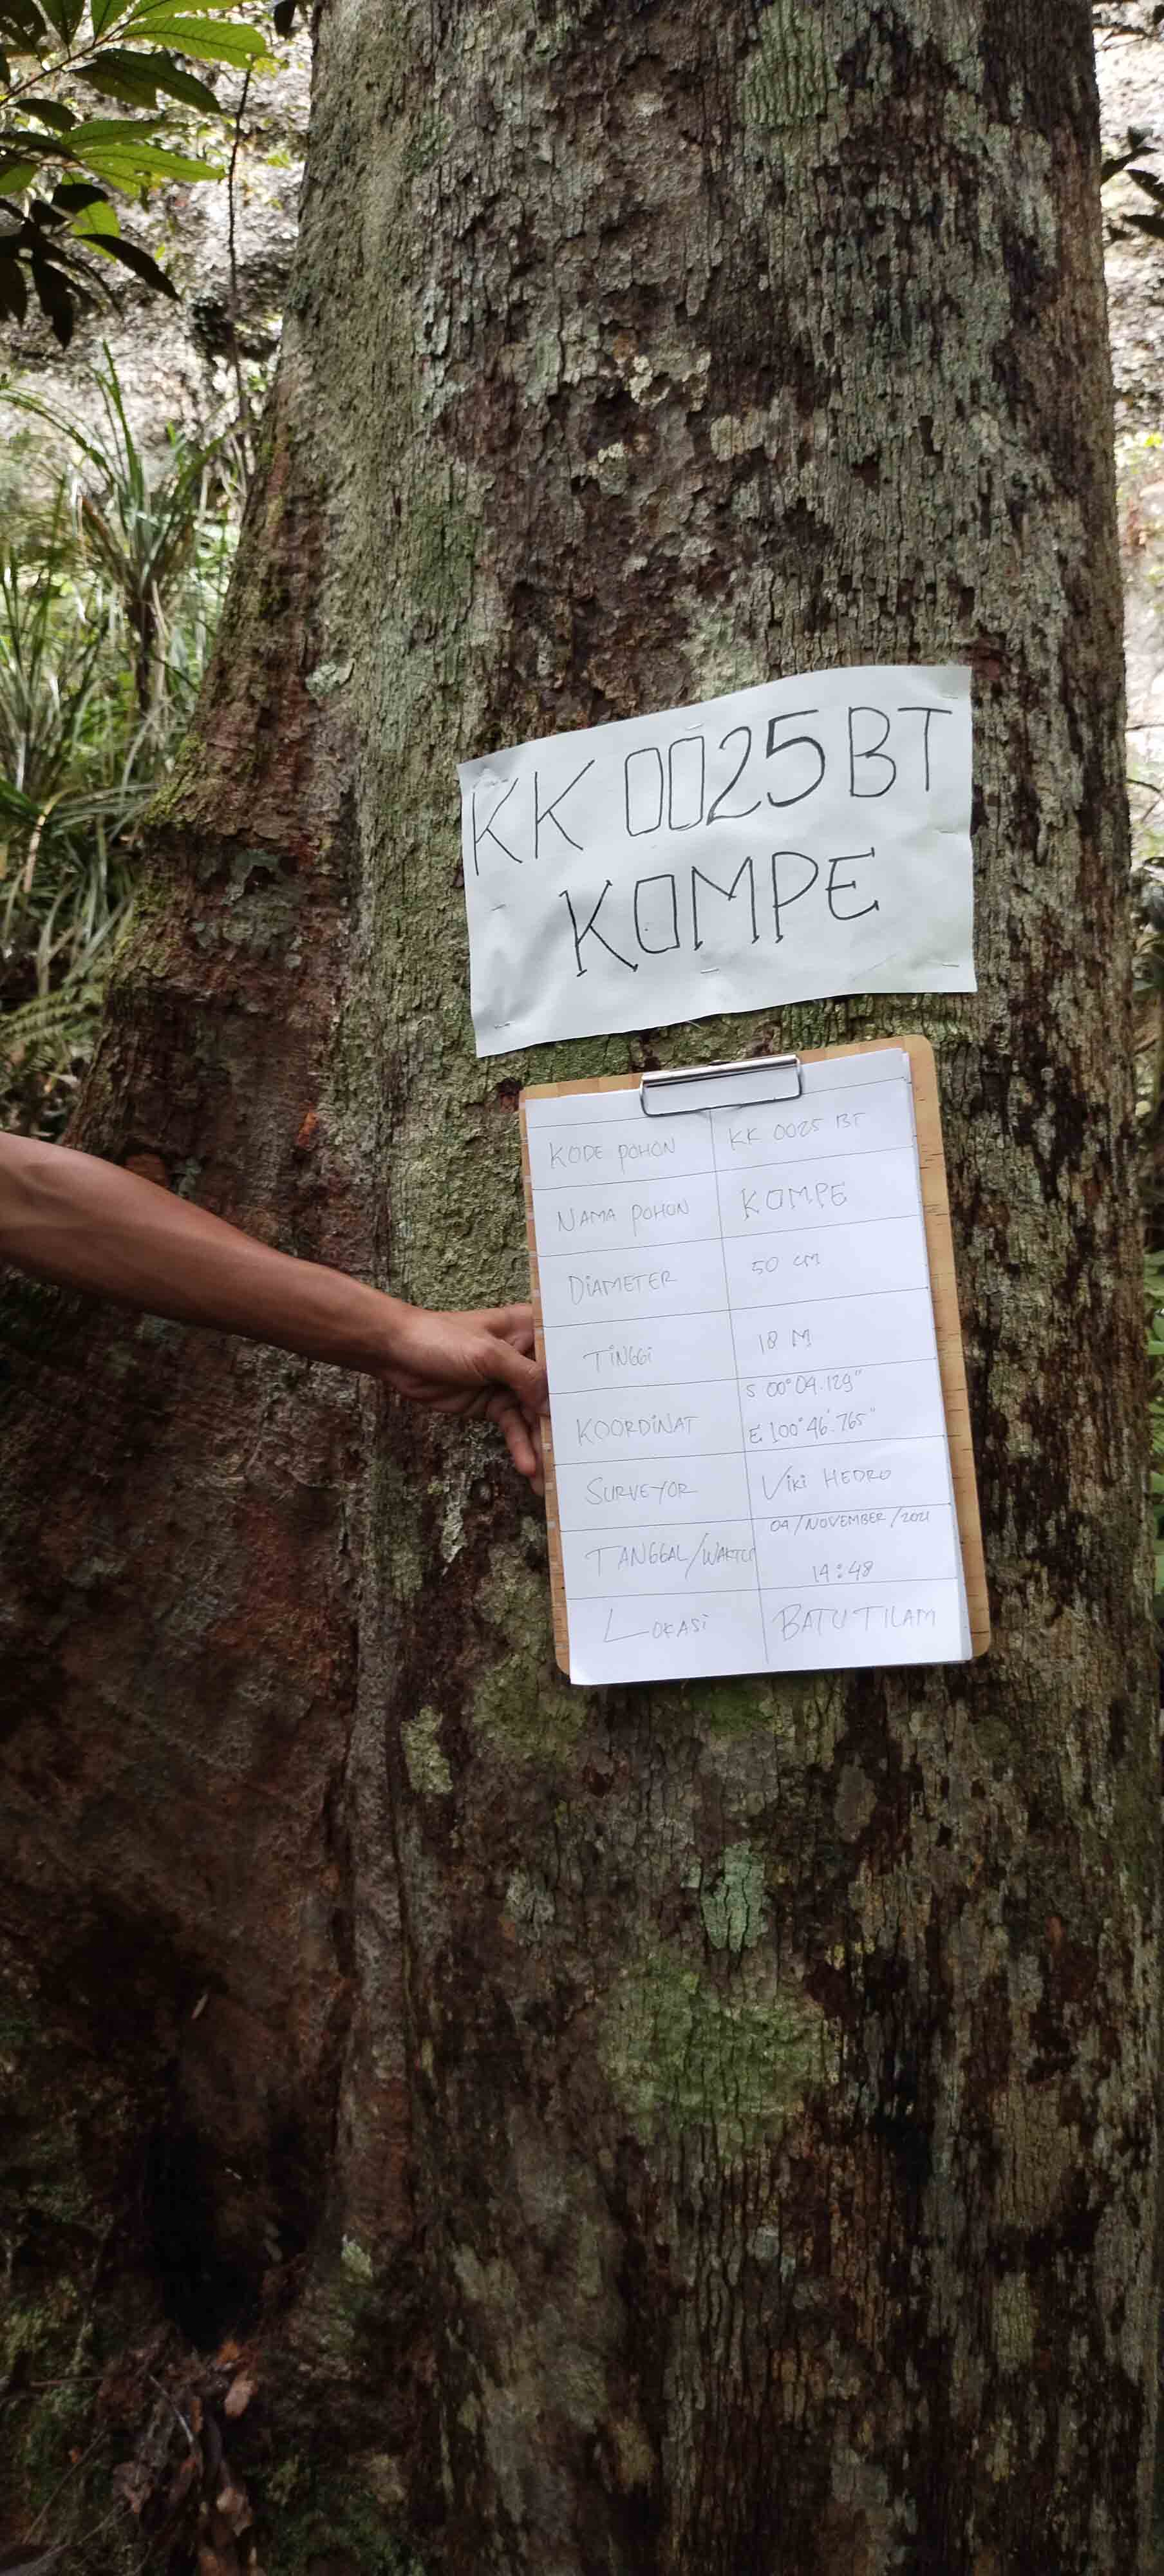 KK 0025 BT
KOMPE
KODE POHON KK 0025 BT
NAMA POHON KOMPE
DIAMETER 50 CM
TINGGI 18 M
KOORDINAT S 00° 04.129" E 100° 46'.765"
SURVEYOR Viki HEDRO
TANGGAL/WAKTU 04/NOVEMBER/2021 14:48
LOKASI BATU TILAM